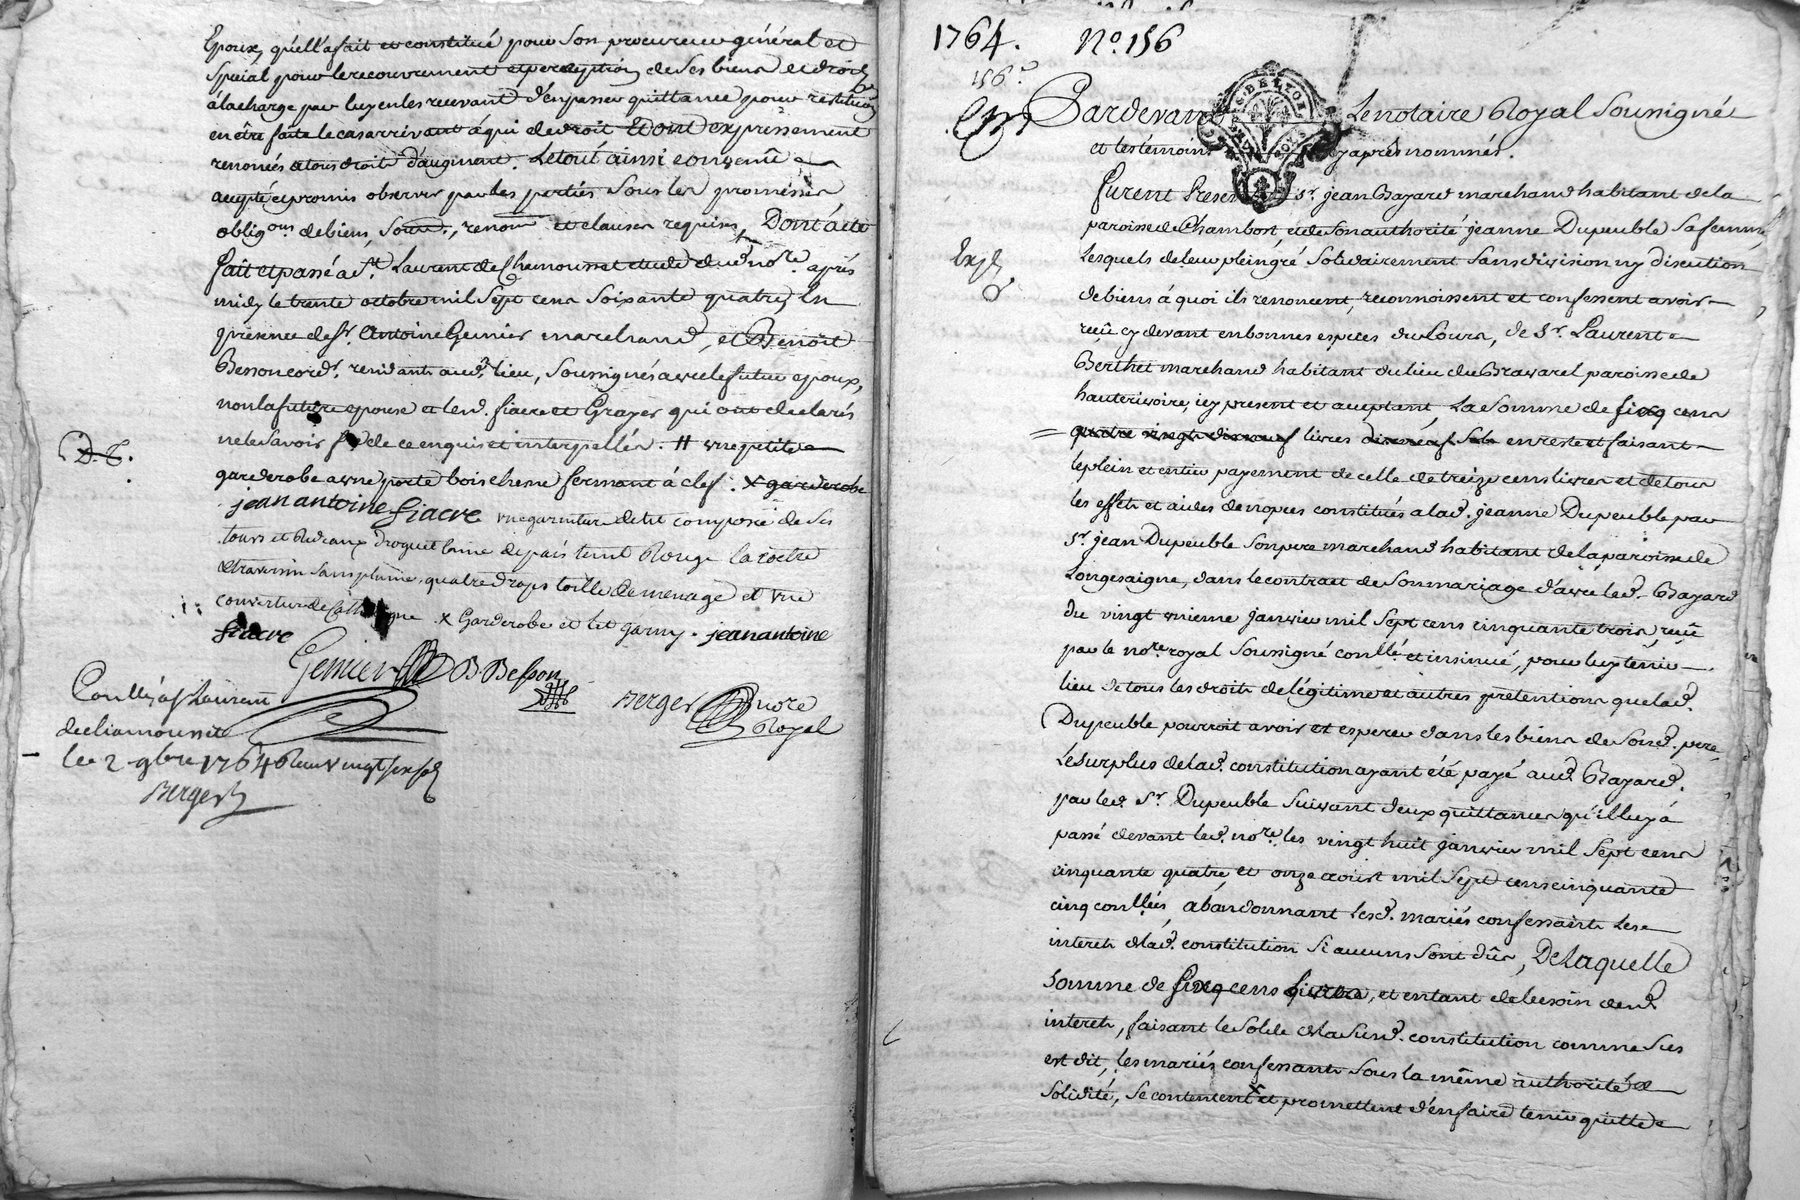 Epoux, quell'a fait et constitué pour son procureur général et
Special pour le recouvrement et perception de ses biens et droits
à la charge par luy en les recevant d'en passer quittance pour restitution
en être faite le cas arrivant à qui de droit Et dont expressement
renoncés a tous droit d'augment. Le tout ainsi convenû
accepté et promis observer par les parties sous les promesses
obligons. de biens, soum., renon et clauses requises, Dont acte
fait et passé a St. Laurent de Chamousset etude dud nore. après
midy le trente octobre mil sept cens soixante quatre, En
presence de sr. Antoine Genier marchand, et Benoit
Besson cordr. residants aud. lieu, soussignés avec le futur epoux,
non la future epouse et led. fiacre et Grayes qui ont declarés
ne le savoir de ce enquis et interpellés. # une petite
garderobe a une porte bois chesne fermant à clef. x garderobe
jean antoine fiacre une garniture de lit composée de ses
tours et rideaux droguet laine de païs teint Rouge la coetre
et traversin sans plume, quatre draps toille de menage et une
D. C.
couverture de x Garderobe et lit garny. jean antoine
fiacre
Genier B. Besson Berger nore
Royal
Conllé a St Laurent
de chamousset
le 2 9bre 1764 Reçu vingt six sols
Berger
1764. No. 156
156e
Pardevant Le notaire Royal soussigné
et les témoins cy après nommés.
furent Presens sr. jean Bayard marchand habitant de la
paroisse de Chambost, et de son authorité jeanne Dupeuble sa femme,
Expé
Lesquels de leur plein gré solidairement sans division ny discution
de biens à quoi ils renoncent, reconnoissent et confessent avoir
reçû cy devant en bonnes especes du Cours, de sr. Laurent
Berthet marchand habitant du lieu du Bravarel paroisse de
hauterivoire, icy present et acceptant La somme de six cens
quatre vingt dixneuf livres dixneuf sols en reste et faisant
le plein et entier payement de celle de treize cens livres et de tous
les effets et aides de nopces constitués a lad. jeanne Dupeuble par
sr. jean Dupeuble son pere marchand habitant de la paroisse de
Longesaigne, dans le contract de son mariage d'avec led. Bayard
du vingt unieme janvier mil sept cens cinquante trois, reçû
par le nore. royal soussigné conllé. et insinué, pour luy tenir
lieu de tous les droits de légitime et autres prétentions que lad.
Dupeuble pourroit avoir et esperer dans les biens de sond. pere,
Le surplus de lad. constitution ayant été payé aud. Bayard.
par led. sr. Dupeuble suivant deux quittances qu'il luy à
passé devant led. nore. les vingt huit janvier mil sept cens
cinquante quatre, et onze aoust mil sept cens cinquante
cinq conllées, abandonnant lesd. mariés confessants les
interets de lad. constitution si aucuns sont dûs, De Laquelle
somme de six cens livres, et entant de besoin desd.
interets, faisant le solde de la susd. constitution comme sus
est dit, les mariés confessants sous la même authorité et
solidité, se contentent x et promettent d'en faire tenir quitte